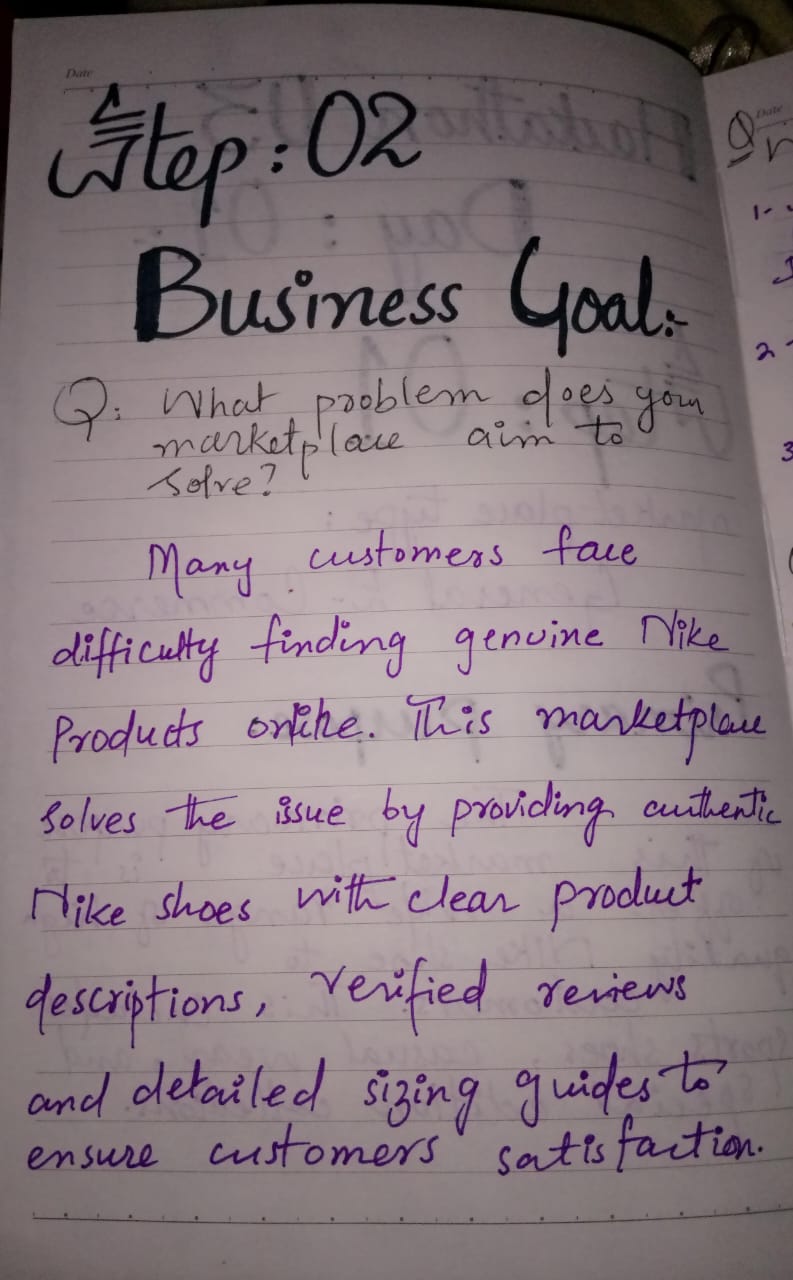 Date
Step: 02
Business Goal:-
Q: What problem does your
marketplace aim to
solve?
Many customers face
difficulty finding genuine Nike
Products online. This marketplace
solves the issue by providing authentic
Nike shoes with clear product
descriptions, verified reviews
and detailed sizing guides to
ensure customers satisfaction.
Date
Q
1-
2-
3